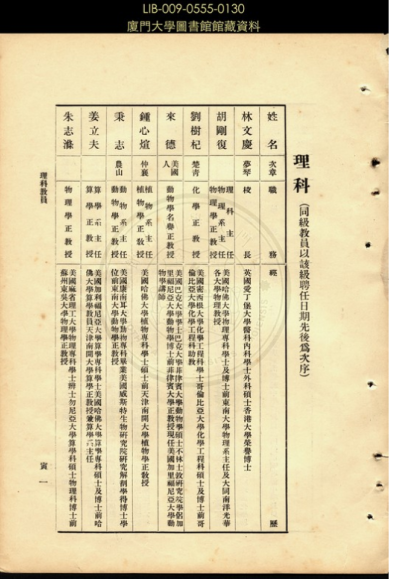 LIB-009-0555-0130
廈門大學圖書館館藏資料
理科(同級教員以該級聘任日期先後爲次序)
姓名 次章 職務 經歷
林文慶 夢琴 校長 英國愛丁堡大學醫科內科學士外科碩士香港大學榮譽博士
胡剛復 理科主任
物理學系主任
物理學正教授 美國哈佛大學物理專科學士及博士前東南大學物理系主任及大同南洋光華
各大學物理教授
劉樹杞 楚青 化學正教授 美國密西根大學化學工程科學士哥倫比亞大學化學工程科碩士及博士前哥
倫比亞大學化學工程科助教
來德 美國人 動物學名譽正教授
秉志 農山 動物學系主任
動物學正教授 美國康南耳大學
位前東南大學動物學正教授
鍾心煊 仲襄 植物學系主任
植物學正教授 美國哈佛大學植物專科學士碩士前天津南開大學植物學正教授
姜立夫 算學系主任
算學正教授 美國加利福尼亞大學算學專科學士美國哈佛大學算學專科碩士及博士前哈
佛大學算學教員天津南開大學算學正教授兼算學系主任
朱志滌 物理學正教授 美國麻省理工大學物理專科學士
蘇州東吳大學物理學正教授
理科教員
寅一